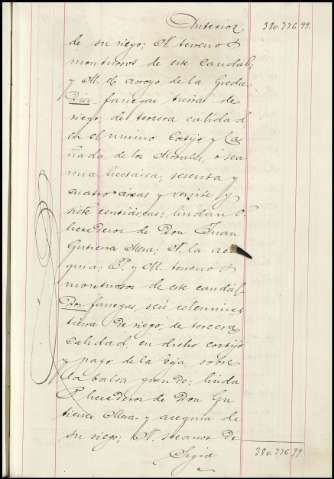 Anterior 380.776.99
de su riego; N. terreno
montuosos de este caudal;
y M. la arroyo de la
Dos fanegas tierras de
riego, de tercera calidad
en el mismo Cortijo y Ca
ñada de los Morales, o sea
una hectárea, sesenta y
cuatro áreas y veinte y
siete centiáreas; lindan
herederos de Don Juan
Gutierrez Mesa; N. la ace
quia; P. y M. terreno
montuosos de este caudal
Dos fanegas, seis celemines
tierra de riego, de tercera
calidad en dicho cortijo
y pago de la Hoja sobre
la balsa grande; linda
P. herederos de Don Gu
tierrez Mesa y acequia de
su riego; N. secanos de
Sigue 380.776.99